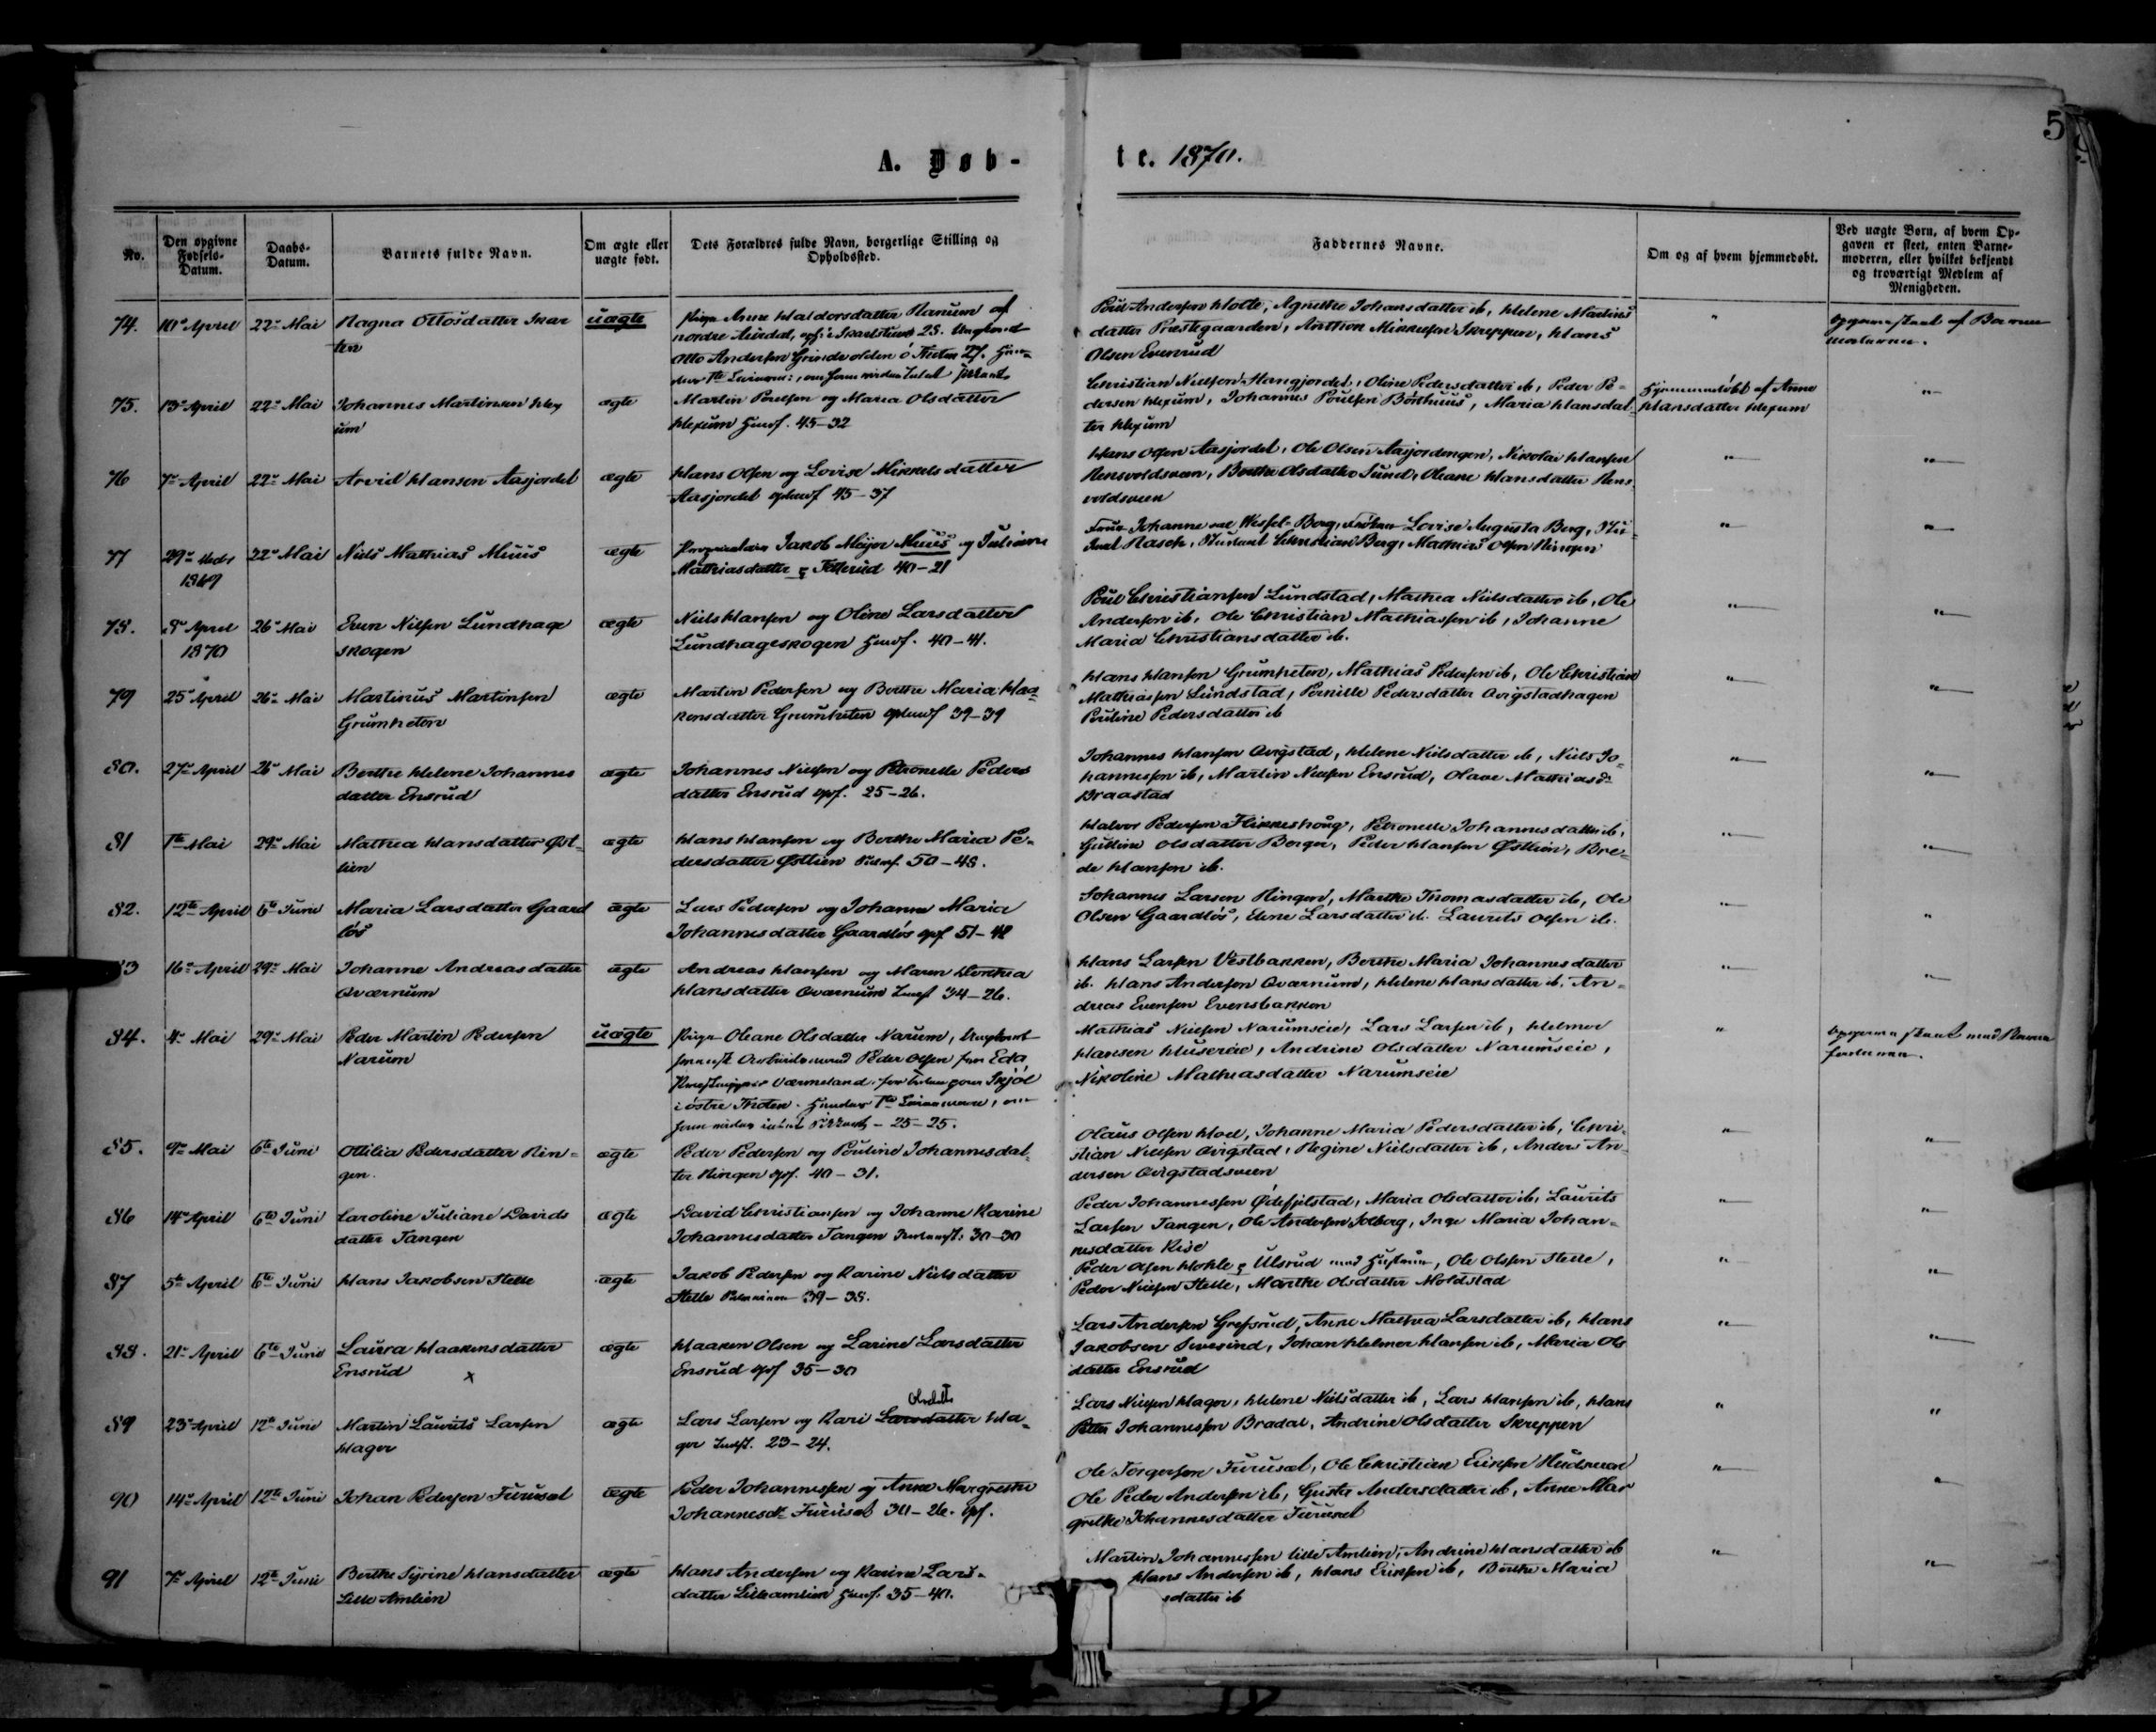 5
A. Døb-
te. 1870.
No.
Den opgivne Fødsels-Datum.
Daabs-Datum.
Barnets fulde Navn.
Om ægte eller uægte født.
Dets Forældres fulde Navn, borgerlige Stilling og Opholdssted.
Faddernes Navne.
Om og af hvem hjemmedøbt.
Ved uægte Børn, af hvem Opgaven er skeet, enten Barnemoderen, eller hvilket bekjendt og troværdigt Medlem af Menigheden.
74. 10de April 22de Mai Ragna Ottosdatter uægte
Pige Anne Haldorsdatter
nordre Aurdal, 28. Ungkarl
Otto Andersen 27.
Poul Andersen Holte, Agnethe Johansdatter ib, Helene Martins
datter Præstegaarden, Anthon Mikkelsen Skreppen, Hans
Olsen Evenrud
75. 13de April 22de Mai Johannes Martinsen Hex
um ægte
Martin Poulsen og Maria Olsdatter
Hexum 45-32
Christian Nielsen Hangjordet, Oline Pedersdatter ib, Peder Pe-
dersen Hexum, Johannes Poulsen Børthuus, Maria Hansdat-
ter Hexum
Hjemmedøbt af Anne
Hansdatter Hexum
76 7de April 22de Mai Arvid Hansen Aasjordet ægte
Hans Olsen og Lovise Mikkelsdatter
Aasjordet 45-37
Hans Olsen Aasjordet, Ole Olsen Aasjordengen, Nikolai Hansen
Berthe Olsdatter Sund, Oleane Hansdatter
77 29de 1869 22de Mai Niels Mathias Muus ægte
Jakob Meyer Muus og Juliane
Mathiasdatter 40-21
Johanne Wessel-Berg, Frøken Lovise Augusta Berg, Stu-
dent Rasch, Student Christian Berg, Mathias Olsen Ringen
78. 8de April 1870 26de Mai Even Nilsen Lundhage
skogen ægte
Niels Hansen og Oline Larsdatter
Lundhageskogen 40-41.
Poul Christiansen Lundstad, Mathea Nielsdatter ib, Ole
Andersen ib, Ole Christian Mathiassen ib, Johanne
Maria Christiansdatter ib.
79 25de April 26de Mai Martinus Martinsen
Grumheten ægte
Martin Pedersen og Berthe Maria Haa-
kensdatter Grumheten 39-39
Hans Hansen Grumheten, Mathias Pedersen ib, Ole Christian
Mathiassen Lundstad, Pernille Pedersdatter Qvigstadhagen
Pouline Pedersdatter ib
80. 27de April 26de Mai Berthe Helene Johannes
datter Ensrud ægte
Johannes Nielsen og Petronelle Peders
datter Ensrud 25-26.
Johannes Hansen Qvigstad, Helene Nielsdatter ib, Niels Jo-
hannessen ib, Martin Nielsen Ensrud, Olave Mathiasd.
Braastad
81 1ste Mai 29de Mai Mathea Hansdatter Øst-
lien ægte
Hans Hansen og Berthe Maria Pe-
dersdatter Østlien 50-48.
Halvor Pedersen Flikkeshoug, Petronelle Johannesdatter ib,
Olsdatter Berger, Peder Hansen Østlien, Bre-
de Hansen ib.
82. 12te April 6te Juni Maria Larsdatter Gaard
løs ægte
Lars Pedersen og Johanne Maria
Johannesdatter Gaardløs
Johannes Larsen Ringen, Marthe Thomasdatter ib, Ole
Olsen Gaardløs, Elene Larsdatter ib. Laurits Olsen ib.
83 16de April 29de Mai Johanne Andreasdatter
Qværnum ægte
Andreas Hansen og Maren Dorthea
Hansdatter Qværnum 34-26.
Hans Larsen Vestbakken, Berthe Maria Johannesdatter
ib. Hans Andersen Qværnum, Helene Hansdatter ib. An-
dreas Evensen Evensbakken
84. 4de Mai 29de Mai Peder Martin Pedersen
Narum uægte
Pige Oleane Olsdatter Narum, Ungkarl
Peder Olsen fra Eda
Værmeland
i østre Thoten. 25-25.
Mathias Nielsen Narumseie, Lars Larsen ib, Helmer
Hansen Huusereie, Andrine Olsdatter Narumseie,
Nikoline Mathiasdatter Narumseie
85. 9de Mai 6te Juni Ottilia Pedersdatter Rin-
gen. ægte
Peder Pedersen og Pouline Johannesdat-
ter Ringen 40-31.
Olaus Olsen Hoel, Johanne Maria Pedersdatter ib, Chri-
stian Nielsen Qvigstad, Regine Nielsdatter ib, Anders An-
dersen Qvigstadsveen
86 14de April 6te Juni Caroline Juliane Davids
datter Tangen ægte
David Christiansen og Johanne Karine
Johannesdatter Tangen 30-30
Peder Johannessen Ødefjelstad, Maria Olsdatter ib, Laurits
Larsen Tangen, Ole Andersen Solberg, Inge Maria Johan-
nesdatter Rise
87 5te April 6te Juni Hans Jakobsen Stelle ægte
Jakob Pedersen og Karine Nielsdatter
Stelle 39-38.
Peder Olsen Ulsrud med Hustru, Ole Olsen Stelle,
Peder Nielsen Stelle, Marthe Olsdatter Moldstad
88. 21de April 6te Juni Laura Haakensdatter
Ensrud x ægte
Haaken Olsen og Larine Larsdatter
Ensrud 35-30
Lars Andersen Grefsrud, Anne Mathea Larsdatter ib, Hans
Jakobsen Svesind, Johan Helmer Hansen ib, Maria Ols
datter Ensrud
89 23de April 12te Juni Martin Laurits Larsen
Hager ægte
Olsdatt.
Lars Larsen og Kari Larsdatter Ha-
ger 23-24.
Lars Nielsen Hager, Helene Nielsdatter ib, Lars Hansen ib, Hans
Johannessen Bradal, Andrine Olsdatter Skreppen
90 14de April 12te Juni Johan Pedersen Furuset ægte
Peder Johannessen og Anne Margrethe
Johannesdtr. Furuset 30-26.
Ole Torgersen Furuset, Ole Christian Eriksen
Ole Peder Andersen ib, Andersdatter ib, Anne Mar
grethe Johannesdatter Furuset
91 7de April 12te Juni Berthe Syrine Hansdatter
Lille Amlien ægte
Hans Andersen og Karine Lars-
datter Lilleamlien 35-40.
Martin Johannessen lille Amlien, Andrine Hansdatter ib
Hans Andersen ib, Hans Eriksen ib, Berthe Maria
sdatter ib